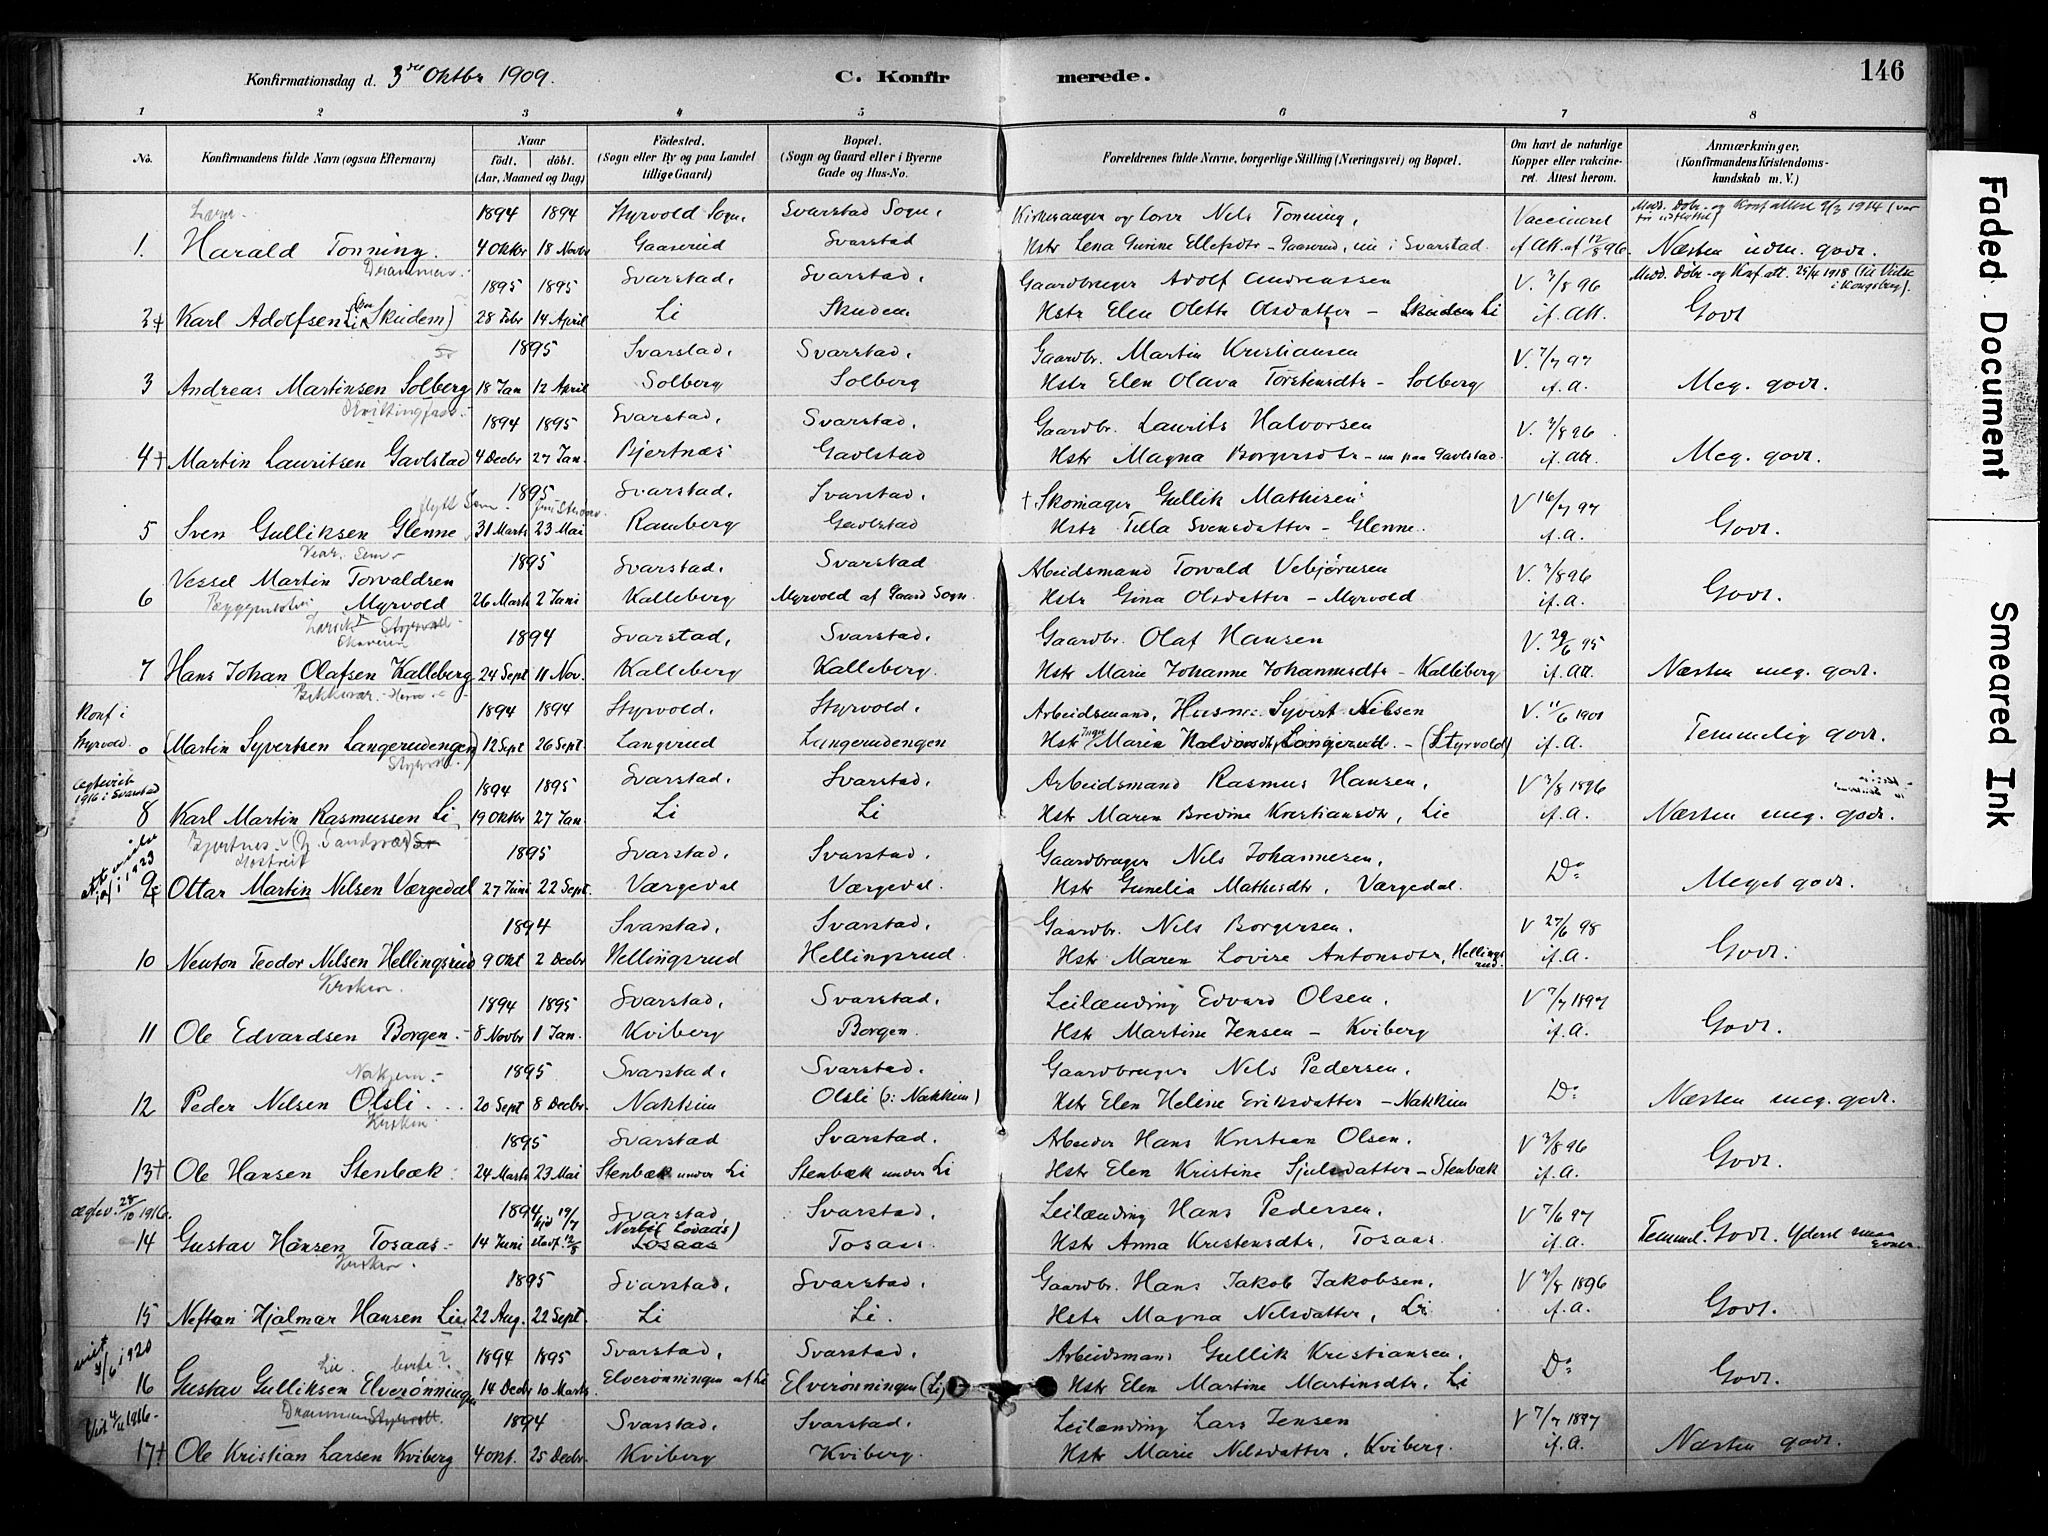 Konfirmationsdag d. 3die Oktbr 1909.
C. Konfirmerede.
146
1 2 3 4 5 6 7 8
No.
Konfirmandens fulde Navn (ogsaa Efternavn)
Naar
födt. döbt.
(Aar, Maaned og Dag)
Födested.
(Sogn eller By og paa Landet
tillige Gaard)
Bopæl.
(Sogn og Gaard eller i Byerne
Gade og Hus-No.
Forældrenes fulde Navne, borgerlige Stilling (Næringsvei) og Bopæl.
Om havt de naturlige
Kopper eller vakcine-
ret. Attest herom.
Anmærkninger.
(Konfirmandens Kristendoms-
kundskab m. V.)
1894 1894 Styrvold Sogn. Svarstad Sogn. Kirkesanger og Lærer Nils Tonning, Vaccineret
1. Harald Tonning. 4 Oktbr 18 Novbr Gaaserud Svarstad Hstr Lena Gurine Ellefsdtr - Gaaserud, nu i Svarstad. if. Att. af 12/8 96. Næsten udm. godt.
Drammen.
1895 1895 Svarstad. Svarstad. Gaardbruger Adolf Andreassen V. 3/8 96 Medd. Døbe- og Konf att. 25/4 1918 i Kongsberg).
2 + Karl Adolfsen Li (Skudem) 28 Febr 14 April Li Skudem Hstr Elen Olette Olsdatter - Skudem Li if. Att. Godt
1895 Svarstad. Svarstad. Gaardbr. Martin Kristiansen V. 7/7 97
3 Andreas Martinsen Solberg 18 Jan 12 April Solberg Solberg Hstr Elen Olava Torstensdtr - Solberg if. A. Meg. godt.
1894 1895 Svarstad. Svarstad. Gaardbr. Laurits Halvorsen V. 3/8 96
4 + Martin Lauritsen Gavlstad 4 Decbr 27 Jan. Bjertnæs Gavlstad Hstr Magna Borgersdtr - nu paa Gavlstad. if. Att. Meg. godt.
1895 Svarstad. Svarstad. + Skomager Gullik Mathisen V 16/7 97
5 Sven Gulliksen Glenne 31 Marts 23 Mai Ramberg Gavlstad Hstr Tilla Svensdatter - Glenne. if. A. Godt.
Vessel Martin Torvaldsen 1895 Svarstad. Svarstad Arbeidsmand Torvald Vebjørnsen V. 3/8 96
6 Myrvold 26 Marts 2 Juni Kalleberg Myrvold af Gaard Sogn. Hstr Gina Olsdatter - Myrvold if. A. Godt.
1894 Svarstad. Svarstad. Gaardbr. Olaf Hansen V. 29/6 95
7 Hans Johan Olafsen Kalleberg 24 Sept 11 Nov. Kalleberg Kalleberg. Hstr Marie Johanne Johannesdtr - Kalleberg if. Att. Næsten meg. godt.
Konf i 1894 1894 Styrvold. Styrvold. Arbeidsmand, Husm. Syvert Nilsen V. 11/6 1900
Styrvold. 0 (Martin Syvertsen Langerudengen) 12 Sept 26 Sept. Langerud Langerudengen Hstr Inger Maria Halvorsdtr, Langerud. - (Styrvold) if. A. Temmelig godt.
1916 i Svarstad 1894 1895 Svarstad. Svarstad. Arbeidsmand Rasmus Hansen. V 3/8 1896
8 Karl Martin Rasmussen Li 19 Oktbr 27 Jan. Li Li Hstr Maren Bredine Kristiansdtr, Lie if. A. Næsten meg. godt.
1895 Svarstad. Svarstad. Gaardbruger Nils Johannesen. Do
9 Ottar Martin Nilsen Værgedal 27 Juni 22 Sept. Værgedal Værgedal. Hstr Gunelia Mathisdtr, Værgedal. Meget godt.
1894 Svarstad. Svarstad. Gaardbr. Nils Borgersen. V 27/6 98
10 Newton Teodor Nilsen Hellingsrud 9 Okt 2 Decbr Hellingsrud Hellingsrud. Hstr Maren Lovise Antonsdtr, Hellingsrud. if. A. Godt.
1894 1895 Svarstad. Svarstad. Leilænding Edvard Olsen. V 7/7 1897
11 Ole Edvardsen Borgen 8 Novbr 1 Jan. Kviberg Borgen. Hstr Martine Jensen - Kviberg if. A. Godt.
1895 Svarstad. Svarstad. Gaardbruger Nils Pedersen.
12 Peder Nilsen Olsli 20 Sept 8 Decbr. Nakkim Olsli (ɔ: Nakkim) Hstr Elen Helene Eriksdatter - Nakkim Do Næsten meg. godt.
1895 Svarstad Svarstad. Arbeider Hans Kristian Olsen. V 3/8 96
13 + Ole Hansen Stenbæk 24 Marts 23 Mai Stenbæk under Li Stenbæk under Li Hstr Elen Kristine Sjulsdatter - Stenbæk if. A. Godt.
28/10 1916. 1894 19/7 Svarstad Svarstad. Leilænding Hans Pedersen. V 7/6 97
14 Gustav Hansen Tosaas 14 Juni Tosaas Tosaas Hstr Anna Kristensdtr, Tosaas if. A. Temmel. Godt. Yderst smaa Evner.
1895 Svarstad. Svarstad. Gaardbr. Hans Jakob Jakobsen. V 3/8 1896
15 Neftan Hjalmar Hansen Lie 22 Aug. 22 Sept. Li Li. Hstr Magna Nilsdatter, Li if. A. Godt.
1920 1894 1895 Svarstad. Svarstad. Arbeidsmand Gullik Kristiansen. Do
16 Gustav Gulliksen Elverønningen 14 Decbr 10 Marts. Elverønningen af Li Elverønningen (Li) Hstr Elen Martine Martinsdtr, Li Godt.
1894 Svarstad. Svarstad. Leilænding Lars Jensen V 7/7 1897
17 + Ole Kristian Larsen Kviberg 4 Okt. 25 Decbr. Kviberg Kviberg. Hstr Marie Nilsdatter, Kviberg. if. A. Næsten godt.
Faded Document
Smeared Ink